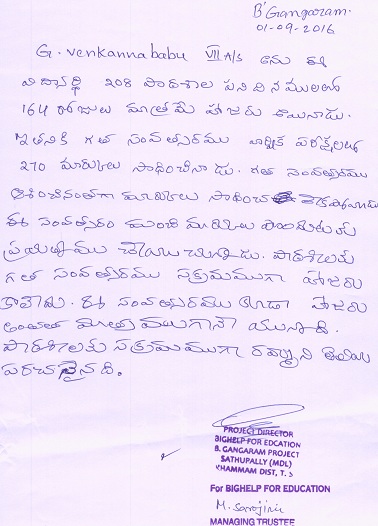 B'Gangaram.
01-09-2016
G. Venkanna babu VII A/s అను ఈ
విద్యార్థి 208 పాఠశాల పనిదినములలో
164 రోజులు మాత్రమే హాజరు అయినాడు.
ఇతనికి గత సంవత్సరము వార్షిక పరీక్షలలో
270 మార్కులు సాధించినాడు. గత సంవత్సరము
ఆశించినంతగా మార్కులు సాధించ
ఈ సంవత్సరం మంచి మార్కులు పొందుటకు
ప్రయత్నము చేయుచున్నాడు. పాఠశాలకు
గత సంవత్సరము సక్రమముగా హాజరు
కాలేదు. ఈ సంవత్సరము కూడా హాజరు
అంతంత మాత్రముగానే యున్నది.
పాఠశాలకు సక్రమముగా రమ్మని తెలియ
పరచనైనది.
PROJECT DIRECTOR
BIGHELP FOR EDCATION
B. GANGARAM PROJECT
SATHUPALLY (MDL)
KHAMMAM DIST, T. S
For BIGHELP FOR EDUCATION
M. Sarojini
MANAGING TRUSTEE